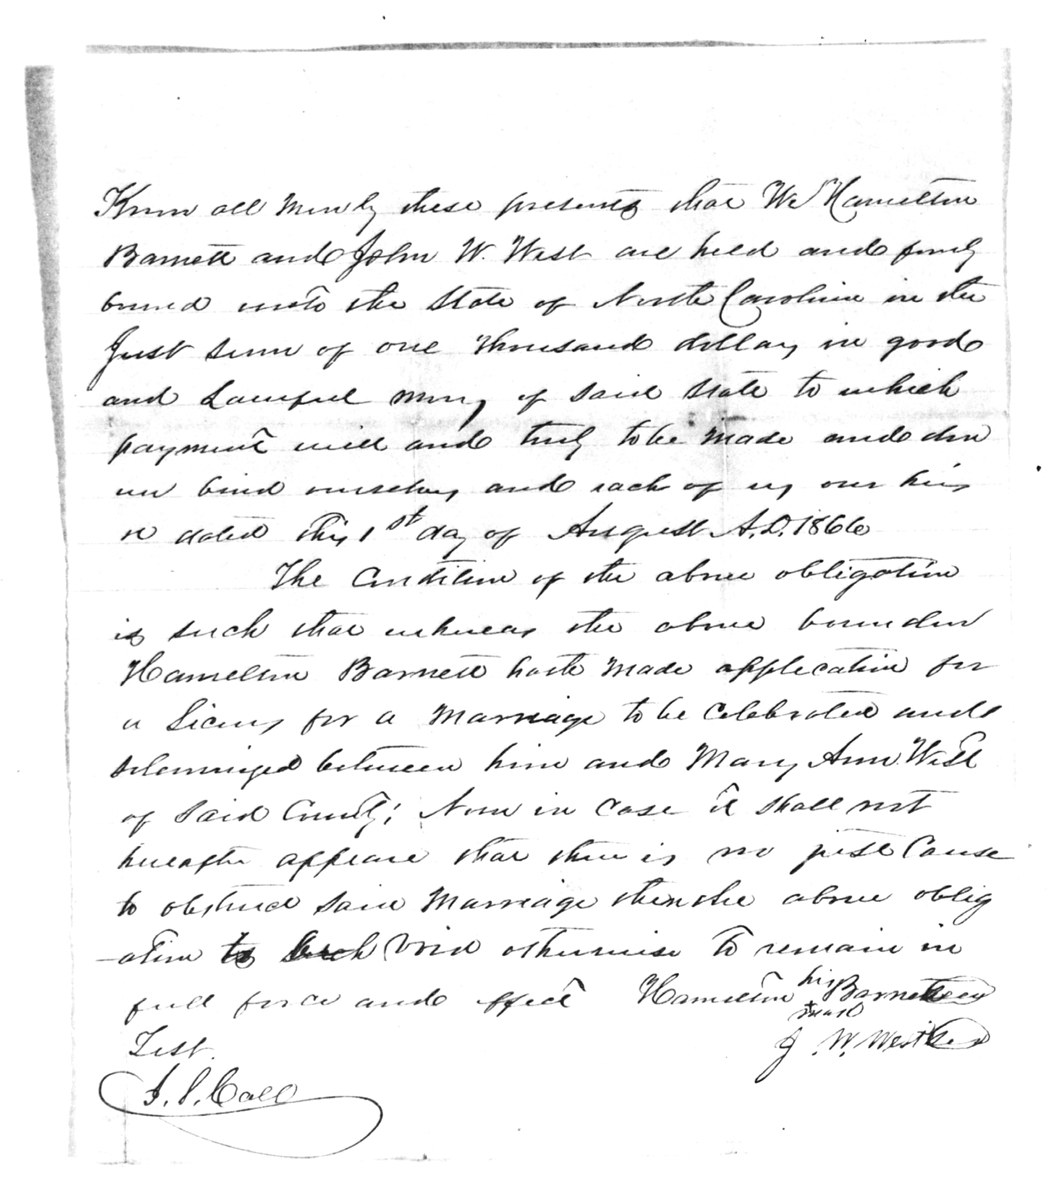 Know all men by these presents that We Hamelton
Barnett and John W. West are held and firmly
bound unto the State of North Carolina in the
Just sum of one thousand dollars in good
and Lawful money of said State to which
payment well and truly to be made and don
we bind ourselves and each of us our heirs
&c dated this 1st day of August A.D. 1866
The Condition of the above obligation
is such that whereas the above bounden
Hamelton Barnett hath made application for
a Licens for a Marriage to be Celebrated and
solemnized between him and Mary Ann West
of said County; Now in case it shall not
hereafter appear that there is no just Cause
to obstruct said Marriage then the above oblig
-ation to Void otherwise to remain in
full force and effect Hamelton his Barnett seal
+ mark
Test. J. W. West seal
J. S. Call